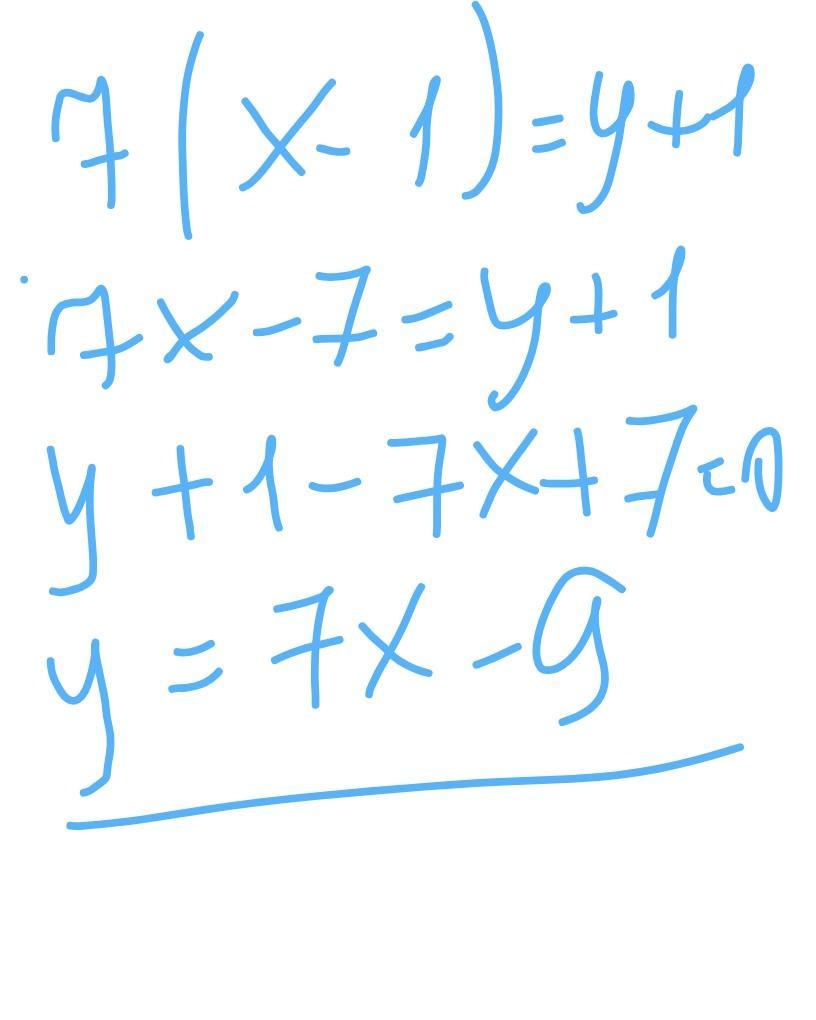 7(x-1)=y+1
7x-7=y+1
y+1-7x+7=0
y=7x-9